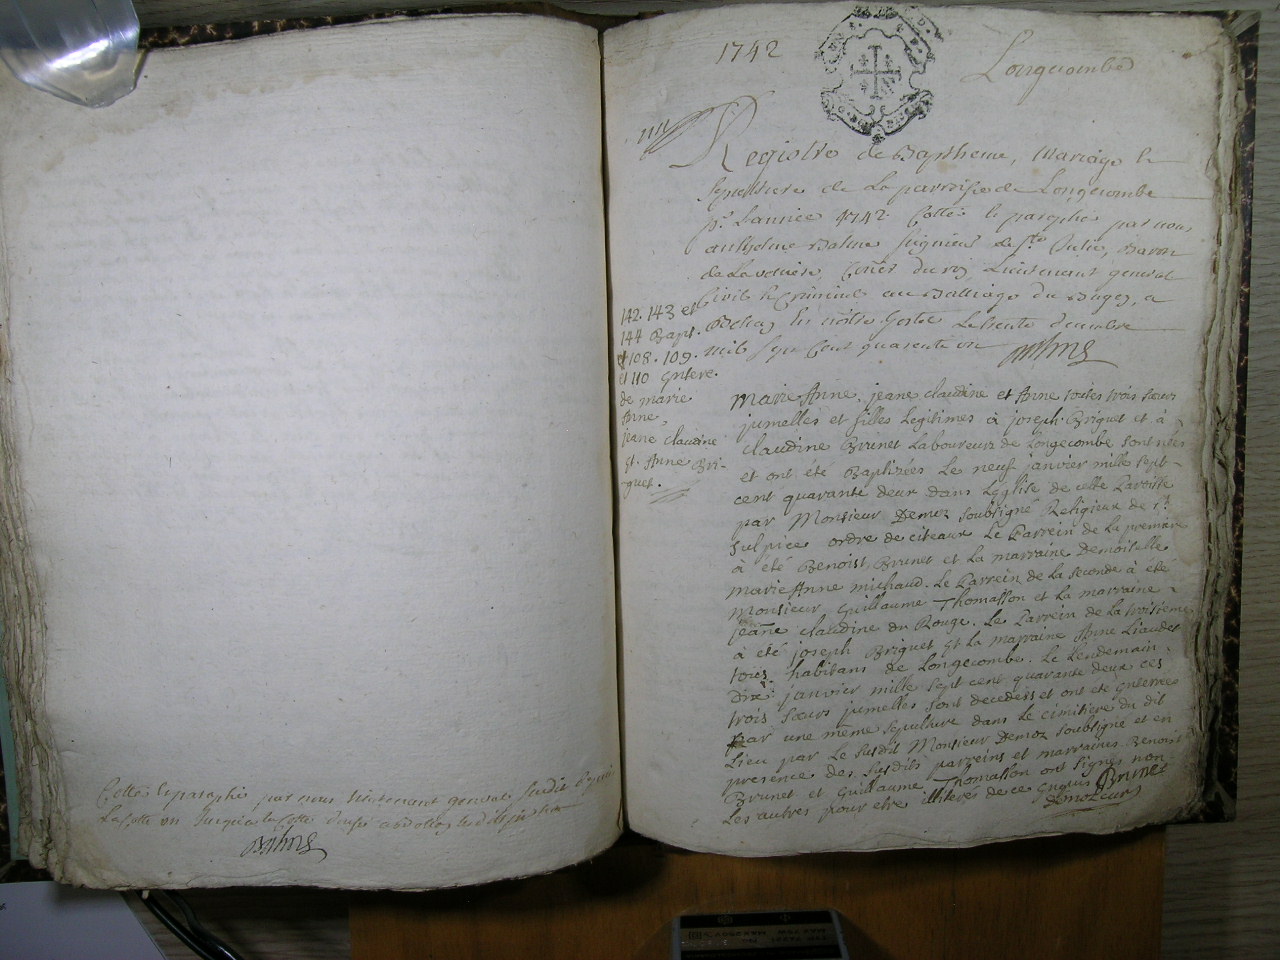 Cotté & paraphé par nous Lieutenant general susdit depuis
La Cotte un Jusques a la Cotte
1742
Longecombe
Registre de Baptheme, Mariage &
Sepulture de La parroisse de Longecombe
pr. Lannée 1742. Cotté & paraphé par nous
anthelme Balme seigneur de Ste. Julie, Baron
Coner. du roy Lieutenant general
Civil & Criminel au Balliage du Bugey, a
Belley En nôtre hostel Le trente decembre
mil Sept Cent quarente un
142. 143 et
144 Bapt.
et 108. 109.
et 110 Enterr.
de marie
Anne,
jeane claudine
Et Anne Bri-
guet.
marie Anne, jeane claudine et Anne toutes trois sœurs
jumelles et filles Legitimes à joseph Briguet et à
claudine Brunet Laboureurs de Longecombe sont nées
et ont été Baptizées Le neuf janvier mille sept-
cent quarante deux dans Léglise de cette Paroisse
par Monsieur Demoz soubsigné Religieux de st.
Sulpice ordre de citeaux Le Parrein de La premiere
à été Benoist Brunet et La marraine Demoiselle
marie Anne michaud. Le Parrein de La seconde à été
Monsieur Guillaume Thomasson et La marraine
jeane claudine du Rouge. Le Parrein de La troisieme
à été joseph Briguet Et La marraine Anne Liaudet
tous habitans de Longecombe. Le Lendemain
Dix janvier mille sept cent quarante deux ces
trois sœurs jumelles sont decedées et ont été Enterrées
par une même sepulture dans Le cimitiere du dit
Lieu par Le susdit Monsieur Demoz soubsigné et en
presence des susdits parreins et marraines Benoist
Brunet et Guillaume Thomasson ont signés non
Les autres pour etre illiteré de ce Enquis Brunet